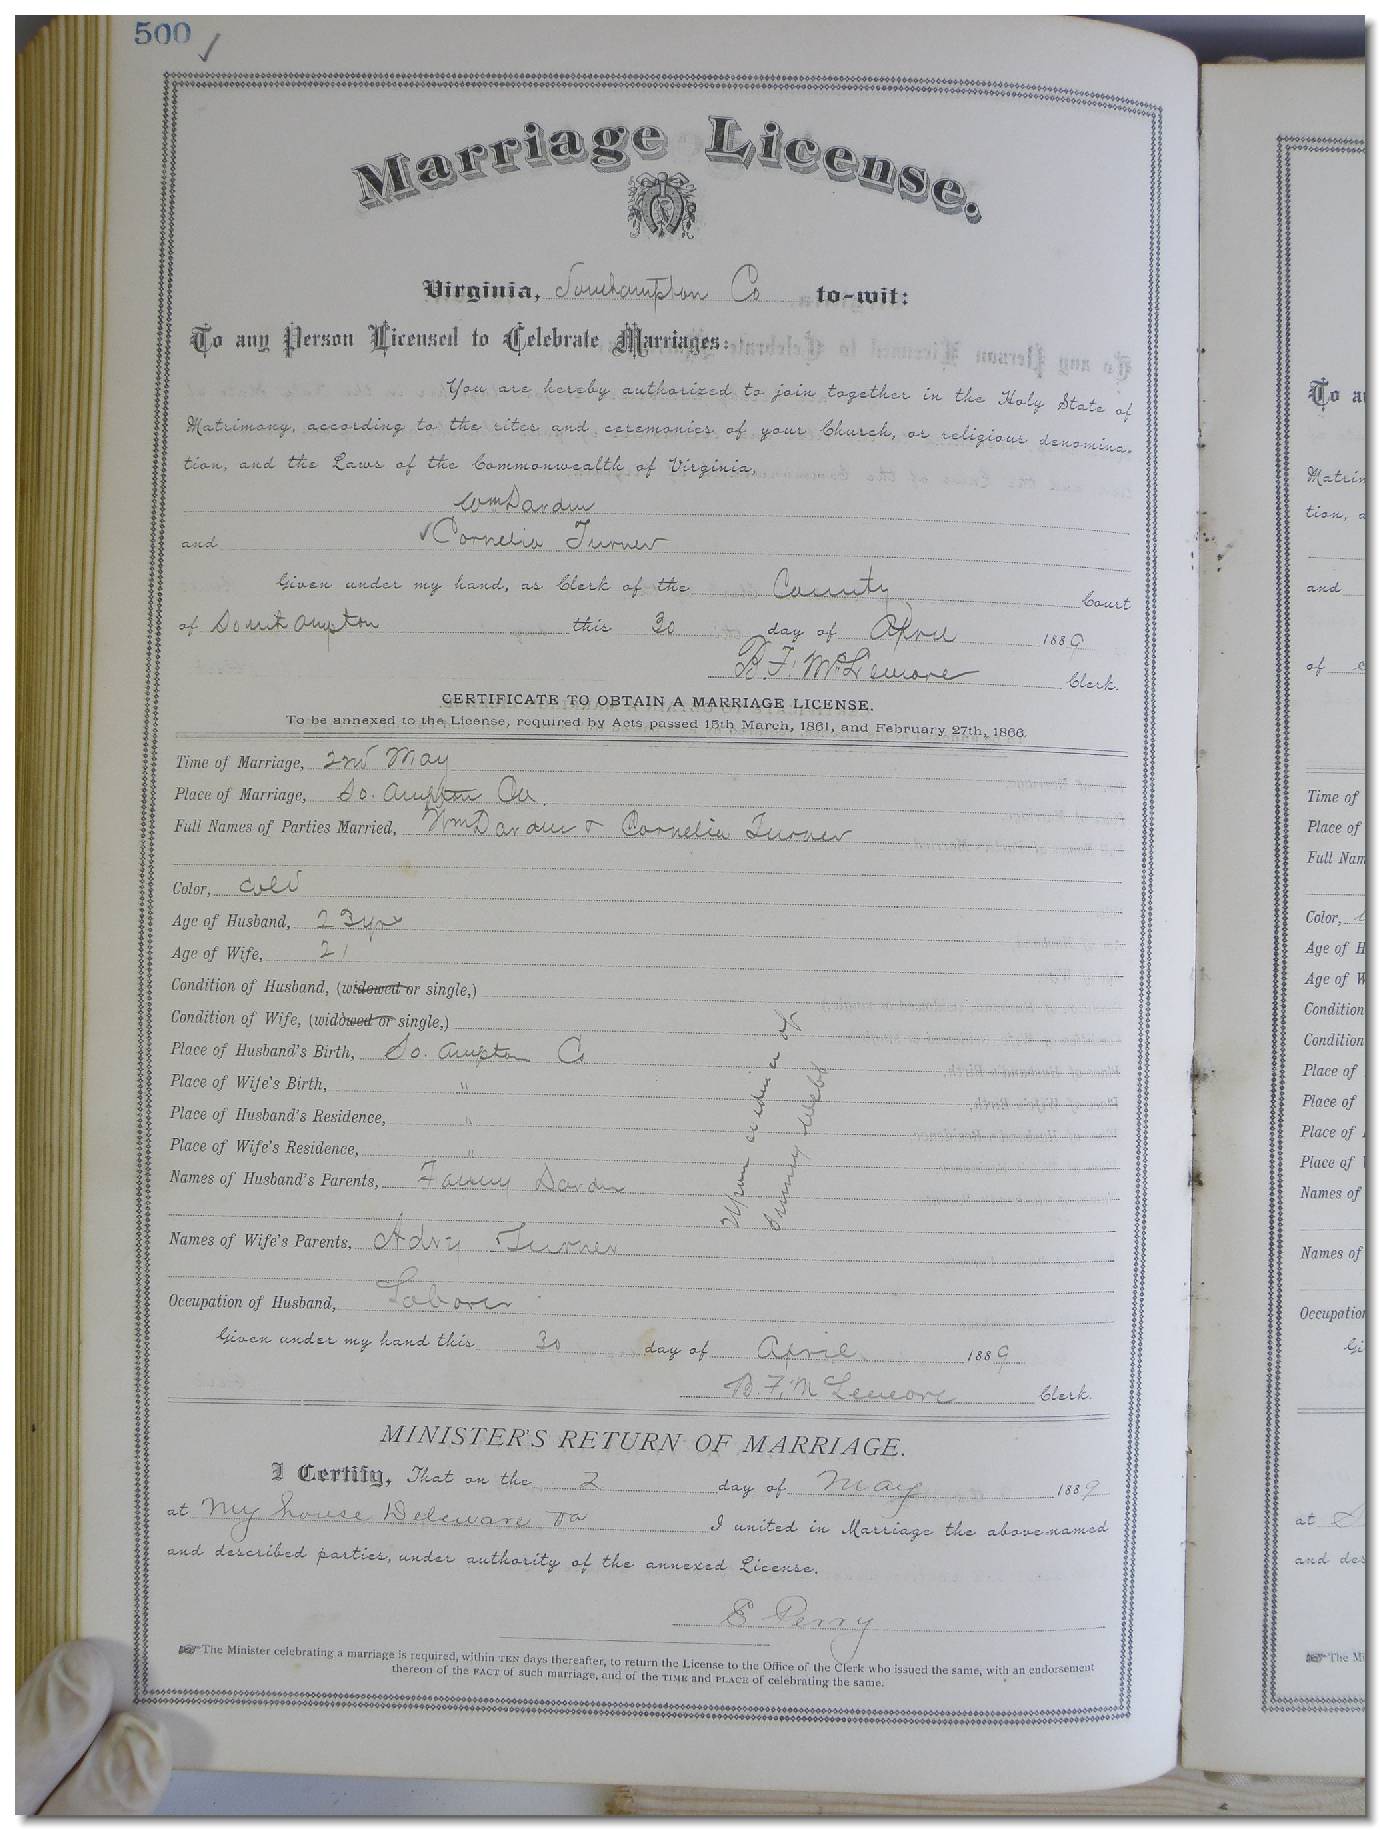 500
Marriage License.
Virginia, Southampton Co to-wit:
To any Person Licensed to Celebrate Marriages:
You are hereby authorized to join together in the Holy State of
Matrimony, according to the rites and ceremonies of your Church, or religious denomina-
tion, and the Laws of the Commonwealth of Virginia,
Wm Darden
and Cornelia Turner
Given under my hand, as Clerk of the County Court
of Southampton this 30 day of April 1889
B. F. McLemore Clerk.
CERTIFICATE TO OBTAIN A MARRIAGE LICENSE.
To be annexed to the License, required by Acts passed 15th March, 1861, and February 27th, 1866.
Time of Marriage, 2nd May
Place of Marriage, So. ampton Co.
Full Names of Parties Married, Wm Darden & Cornelia Turner
Color, cold
Age of Husband, 23 yr
Age of Wife, 21
Condition of Husband, (widowed or single,)
Condition of Wife, (widowed or single,)
Place of Husband's Birth, So. ampton Co
Place of Wife's Birth, "
Place of Husband's Residence, "
Place of Wife's Residence, "
Names of Husband's Parents, Darden
Names of Wife's Parents, Turner
Occupation of Husband, Laborer
Upon evidence of
Webb
Given under my hand this 30 day of April 1889
B. F. McLemore Clerk.
MINISTER'S RETURN OF MARRIAGE.
I Certify, That on the 2 day of May 1889
at My house Deleware Va I united in Marriage the above-named
and described parties, under authority of the annexed License.
E Perry
The Minister celebrating a marriage is required, within TEN days thereafter, to return the License to the Office of the Clerk who issued the same, with an endorsement
thereon of the FACT of such marriage, and of the TIME and PLACE of celebrating the same.
To a
Matrim
tion, a
and
of
Time of
Place of
Full Nam
Color,
Age of H
Age of W
Condition
Condition
Place of
Place of
Place of
Place of
Names of
Names of
Occupation
Gi
at
and des
The Mi